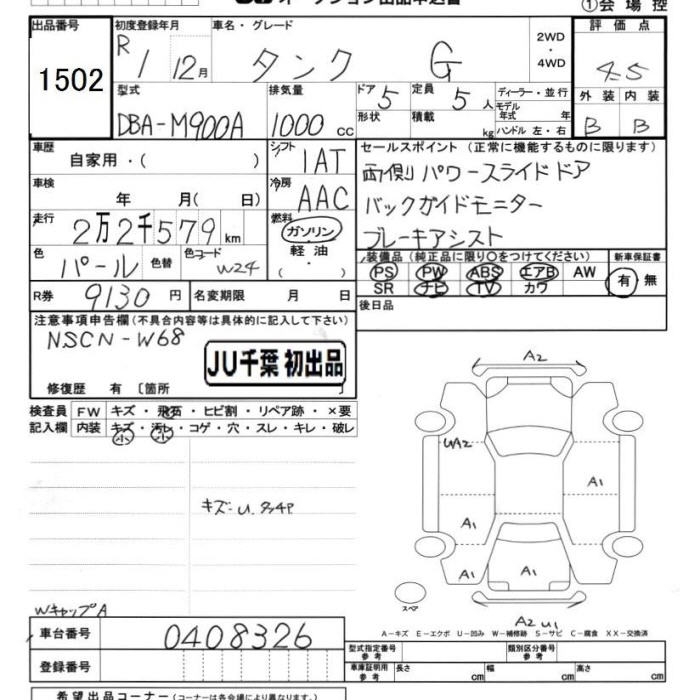 ①会場控
出品番号 初度登録年月 車名・グレード 2WD・4WD 評価点
1502 R1 12月 タンク G 4.5
型式 排気量 ドア 5 定員 5人 ディーラー・並行 外装 内装
DBA-M900A 1000cc 形状 積載 kg モデル年式 年 ハンドル 左・右 B B
車歴 自家用・( ) シフト IAT セールスポイント (正常に機能するものに限ります)
両側パワースライドドア
車検 年 月( 日) 冷房 AAC バックガイドモニター
走行 2万2千579km 燃料 ガソリン・軽油・ ブレーキアシスト
色 パール 色替 色コード W24 装備品 (純正品に限り○をつけてください) 新車保証書
PS PW ABS エアB AW 有・無
SR ナビ TV カワ
R券 9130円 名変期限 月 日 後日品
注意事項申告欄(不具合内容等は具体的に記入して下さい)
NSCN-W68
JU千葉 初出品
修復歴 有 〔箇所
検査員 FW キズ・飛石・ヒビ割・リペア跡・×要
記入欄 内装 キズ・汚レ・コゲ・穴・スレ・キレ・破レ
小 小
A2
UA2
A1
A1
A1
A1
A2 U1
スペア
Wキャップ A
A-キズ E-エクボ U-凹み W-補修跡 S-サビ C-腐食 XX-交換済
車台番号 0408326
型式指定番号 参考 類別区分番号 参考
登録番号 車庫証明用 参考 長さ cm 幅 cm 高さ cm
希望出品コーナー (コーナーは各会場により異なります。)